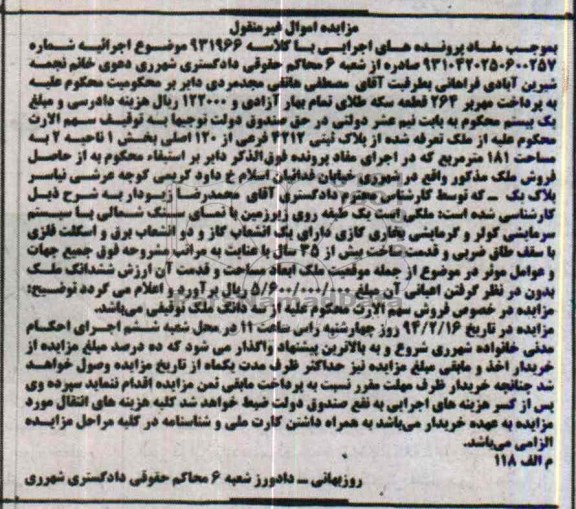 مزایده اموال غیرمنقول
بموجب مفاد پرونده های اجرایی با کلاسه ۹۳۱۹۶۶ موضوع اجرائیه شماره
۹۳۱۰۴۲۰۲۵۰۶۰۰۲۵۷ صادره از شعبه ۶ محاکم حقوقی دادگستری شهرری دعوی خانم نجمه
شیرین آبادی فراهانی بطرفیت آقای مصطفی هاتفی مجدمردی دایر بر محکومیت محکوم علیه
به پرداخت مهریه ۲۶۴ قطعه سکه طلای تمام بهار آزادی و ۱۲۲۰۰۰ ریال هزینه دادرسی و مبلغ
یک بیستم محکوم به بابت نیم عشر دولتی در حق صندوق دولت توجها به توقیف سهم الارث
محکوم علیه از ملک تعرفه شده از پلاک ثبتی ۴۲۱۲ فرعی از ۱۲۰ اصلی بخش ۱ ناحیه ۲ به
مساحت ۱۸۱ مترمربع که در اجرای مفاد پرونده فوق الذکر دایر بر استیفاء محکوم به از حاصل
فروش ملک مذکور واقع در شهرری خیابان فدائیان اسلام خ داود کریمی کوچه عرشی نیاسر
پلاک یک ــ که توسط کارشناس محترم دادگستری آقای محمدرضا رودبار به شرح ذیل
کارشناسی شده است: ملکی است یک طبقه روی زیرزمین با نمای سنگ شمالی با سیستم
سرمایشی کولر و گرمایشی بخاری گازی دارای یک انشعاب گاز و دو انشعاب برق و اسکلت فلزی
با سقف طاق ضربی و قدمت ساخت بیش از ۳۵ سال با عنایت به مراتب مشروحه فوق جمیع جهات
و عوامل موثر در موضوع از جمله موقعیت ملک ابعاد مساحت و قدمت آن ارزش ششدانگ ملک
بدون در نظر گرفتن اعیانی آن مبلغ ۵/۶۰۰/۰۰۰/۰۰۰ ریال برآورد و اعلام می گردد توضیح:
مزایده در خصوص فروش سهم الارث محکوم علیه از سه دانگ ملک توقیفی می‌باشد.
مزایده در تاریخ ۹۴/۲/۱۶ روز چهارشنبه راس ساعت ۱۱ در محل شعبه ششم اجرای احکام
مدنی خانواده شهرری شروع و به بالاترین پیشنهاد واگذار می شود که ده درصد مبلغ مزایده از
خریدار اخذ و مابقی مبلغ مزایده نیز حداکثر ظرف مدت یکماه از تاریخ مزایده وصول خواهد
شد چنانچه خریدار ظرف مهلت مقرر نسبت به پرداخت مابقی ثمن مزایده اقدام ننماید سپرده وی
پس از کسر هزینه های اجرایی به نفع صندوق دولت ضبط خواهد شد کلیه هزینه های انتقال مورد
مزایده به عهده خریدار می‌باشد به همراه داشتن کارت ملی و شناسنامه در کلیه مراحل مزایده
الزامی می‌باشد.
م الف ۱۱۸
روزبهانی ــ دادورز شعبه ۶ محاکم حقوقی دادگستری شهرری